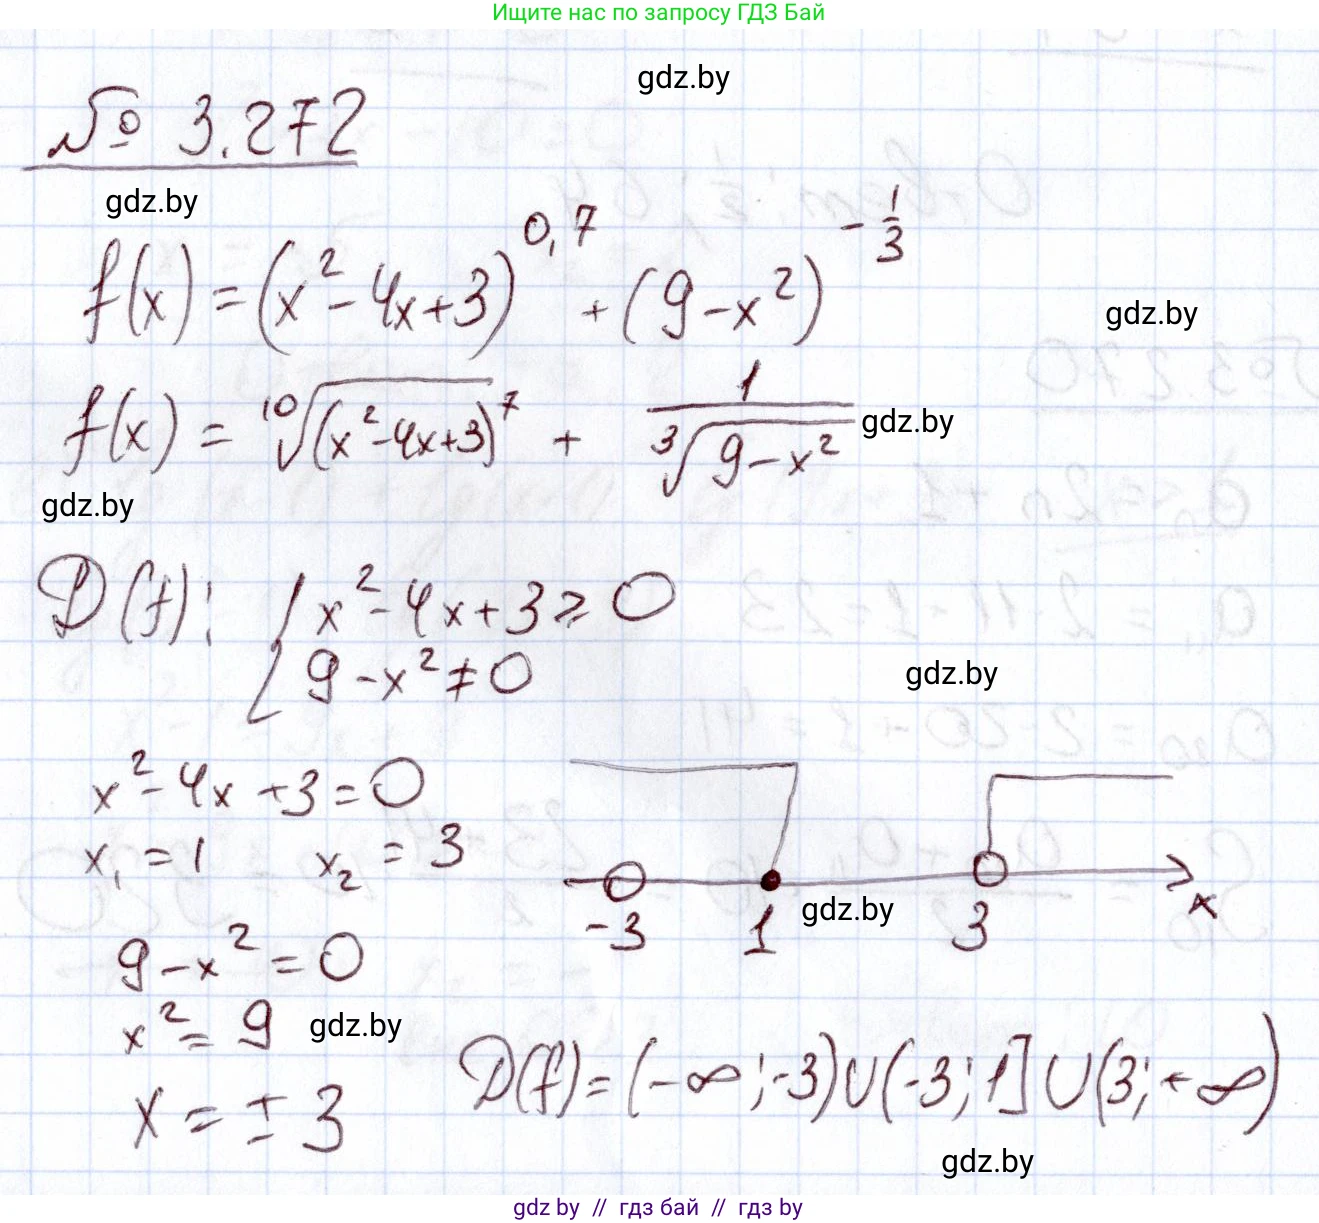 Ищите нас по запросу ГДЗ Бай
gdz.by
№ 3.272
gdz.by
f(x) = (x² - 4x + 3)^0,7 + (9 - x²)^-1/3
gdz.by
f(x) = ¹⁰√(x² - 4x + 3)⁷ + 1/³√9 - x²
gdz.by
gdz.by
D(f): { x² - 4x + 3 ≥ 0
9 - x² ≠ 0
gdz.by
x² - 4x + 3 = 0
x₁ = 1 x₂ = 3
-3 1 3 x
gdz.by
9 - x² = 0
x² = 9
gdz.by
x = ± 3
D(f) = (-∞; -3) U (-3; 1] U (3; +∞)
gdz.by
gdz by // гдз бай // гдз by